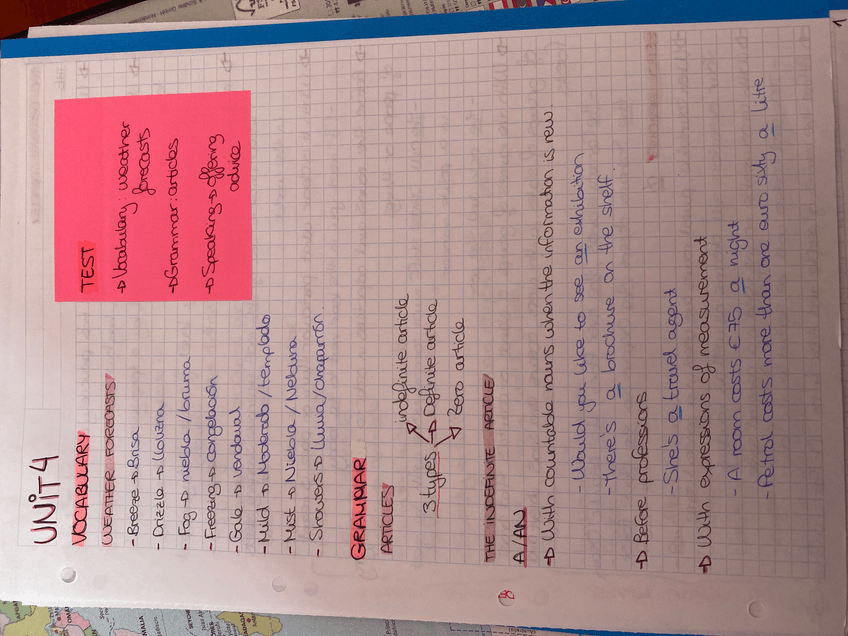 UNIT 4
VOCABULARY
WEATHER FORECASTS
- Breeze → Brisa
- Drizzle → llovizna
- Fog → niebla / bruma
- Freezing → congelación
- Gale → vendaval
- Mild → Moderado / templado
- Mist → Niebla / Neblina
- Showers → lluvia / chaparrón.
TEST
→ Vocabulary: weather
forecasts
→ Grammar: articles
→ Speaking → offering
advice
GRAMMAR
ARTICLES
3 types
indefinite article
Definite article
Zero article
THE INDEFINITE ARTICLE
A / AN
→ With countable nouns when the information is new.
- Would you like to see an exhibition
- There's a brochure on the shelf.
→ Before professions
- She's a travel agent
→ With expressions of measurement
- A room costs €75 a night
- Petrol costs more than one euro sixty a litre
1